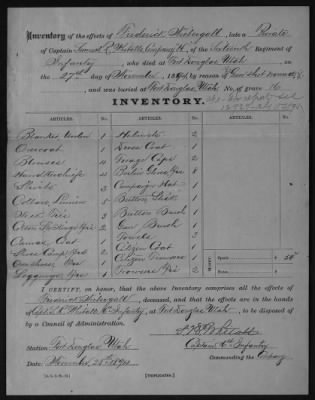 Inventory of the effects of Frederick late a Private
of Captain Samuel R. Whitall Company H, of the Sixteenth Regiment of
Infantry, who died at Fort Douglas Utah on
the 27th day of November 1894, by reason of Gun shot wound
and was buried at Fort Douglas Utah No. of grave 16
INVENTORY.
ARTICLES. No. ARTICLES. No.
Blanket Woolen 1 Helmet 2
Overcoat 1 Dress Coat 1
Blouses 11 Forage Caps 2
Handkerchiefs 11 Berlin Gloves Prs 8
Shirts 3 Campaign Hat 1
Collars Linen 5 Button Stick 1
Neck Ties 3 Button Brush 1
Cotton Stockings Prs 2 Gun Brush 1
Canvas Coat 1 Towels 2
Shoes Campaign Prs 2 Citizen Coat 1
Overshoes Prs 1 Citizen Trousers 1
Leggings Prs 1 Trousers Prs 2
MONEY. Specie $ 50
Notes
I CERTIFY, on honor, that the above Inventory comprises all the effects of
Frederick deceased, and that the effects are in the hands
of Capt. S. R. Whitall 16 Infantry, at Fort Douglas Utah, to be disposed of
by a Council of Administration.
S. R. Whitall
Station: Fort Douglas Utah Captain 16th Infantry
Date: November 28th 1894 Commanding the Company
[TRIPLICATES.]